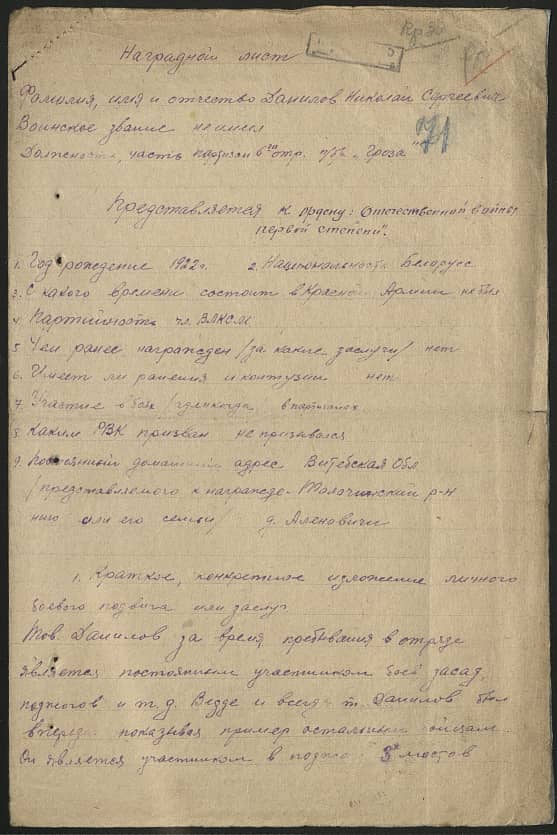 Кр 30
71
Наградной лист
Фамилия, имя и отчество Данилов Николай Сергеевич
Воинское звание не имеел
Должность, часть партизан 6го отр. п/бр. „Гроза"
Представляется к Ордену: Отечественной войны
первой степени".
1. Год рождение 1922 г. 2. Национальность Белорусс
3. С какого времени состоит в Красной Армии не был
4 Партийность чл. ВЛКСМ
5 Чем ранее награжден /за какие заслуги/ нет
6. Имеет ли ранения и контузии нет
7. Участие в боях /где и когда/ в партизанах
8 Каким РВК призван не призывался
9. Постоянный домашний адрес Витебская Обл
/представляемого к награжде- Толочинский р-н
нию или его семьи/ д. Аленовичи
1. Краткое, конкретное изложение личного
боевого подвига или заслуг
Тов. Данилов за время пребывания в отряде
является постоянным участником боев засад,
поджогов и т. д. Везде и всегда т. Данилов был
впереди показывая пример остальным бойцам
Он является участником в поджо 3х мостов